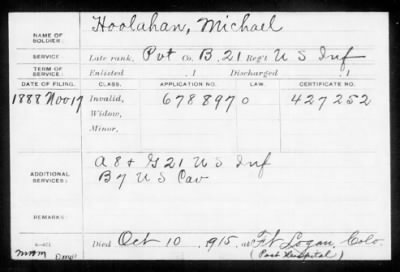 Hoolahan, Michael
NAME OF SOLDIER:
SERVICE: Late rank, Pvt Co. B. 21 Reg't U S Inf
TERM OF SERVICE: Enlisted , 1 Discharged , 1
DATE OF FILING. CLASS. APPLICATION NO. LAW. CERTIFICATE NO.
1888 Nov 17 Invalid, 678897 0 427252
Widow,
Minor,
ADDITIONAL SERVICES: A 8 & G 21 U S Inf
B 7 U S Cav
REMARKS:
Died Oct 10, 1915, at Ft Logan, Colo.
(Post Hospital)